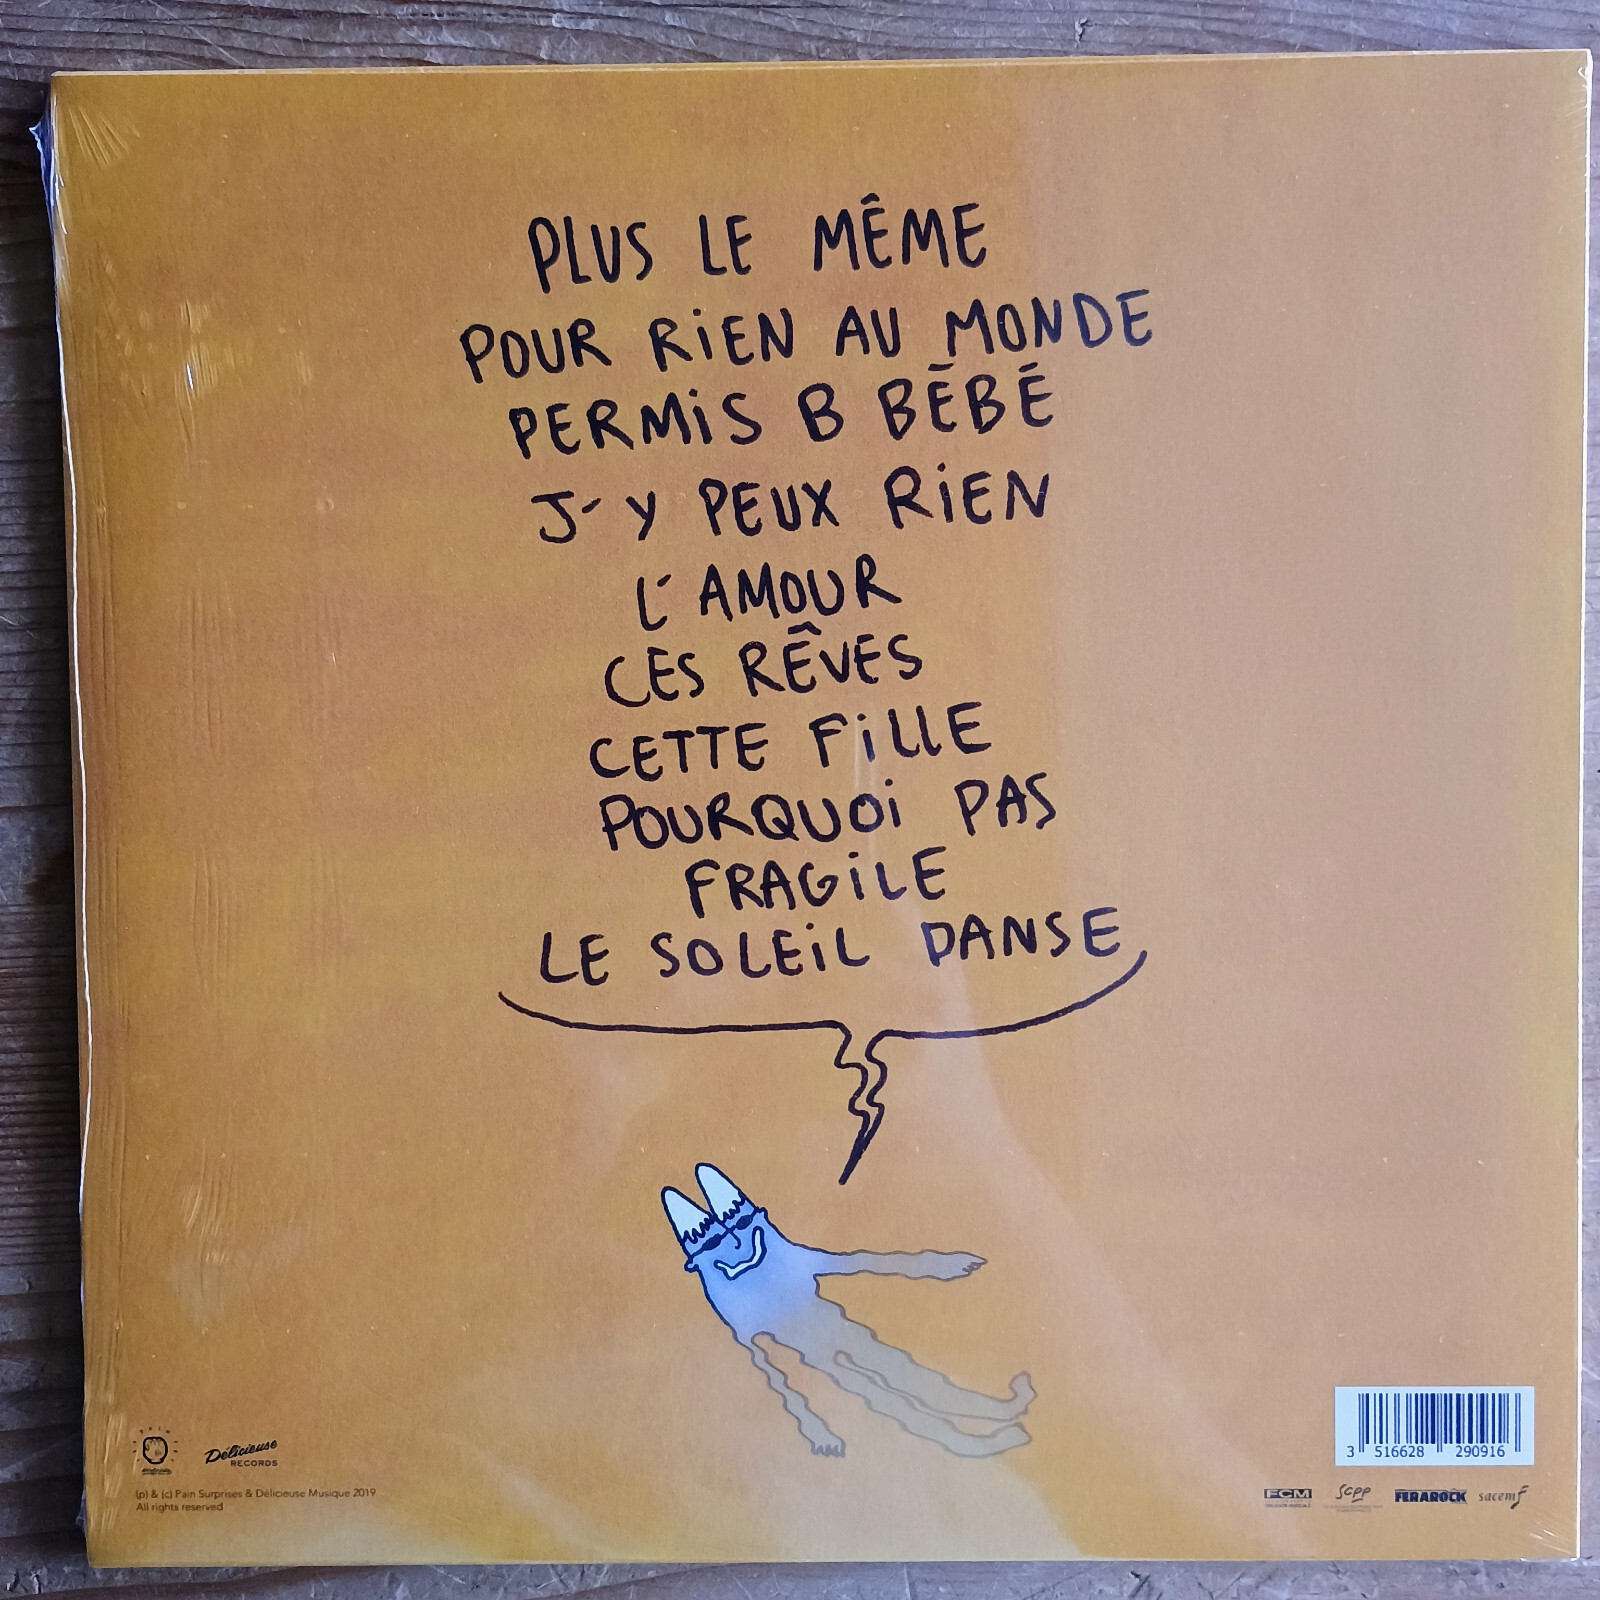 PLUS LE MÊME
POUR RiEN AU MONDE
PERMiS B BÉBÉ
J'Y PEUX RiEN
L'AMOUR
CES RÊVES
CETTE FiLLE
POURQUOi PAS
FRAGiLE
LE SOLEiL DANSE
PAIN
Délicieuse
RECORDS
(p) & (c) Pain Surprises & Délicieuse Musique 2019
All rights reserved
3 516628 290916
FCM
scpp
FERAROCK
sacem